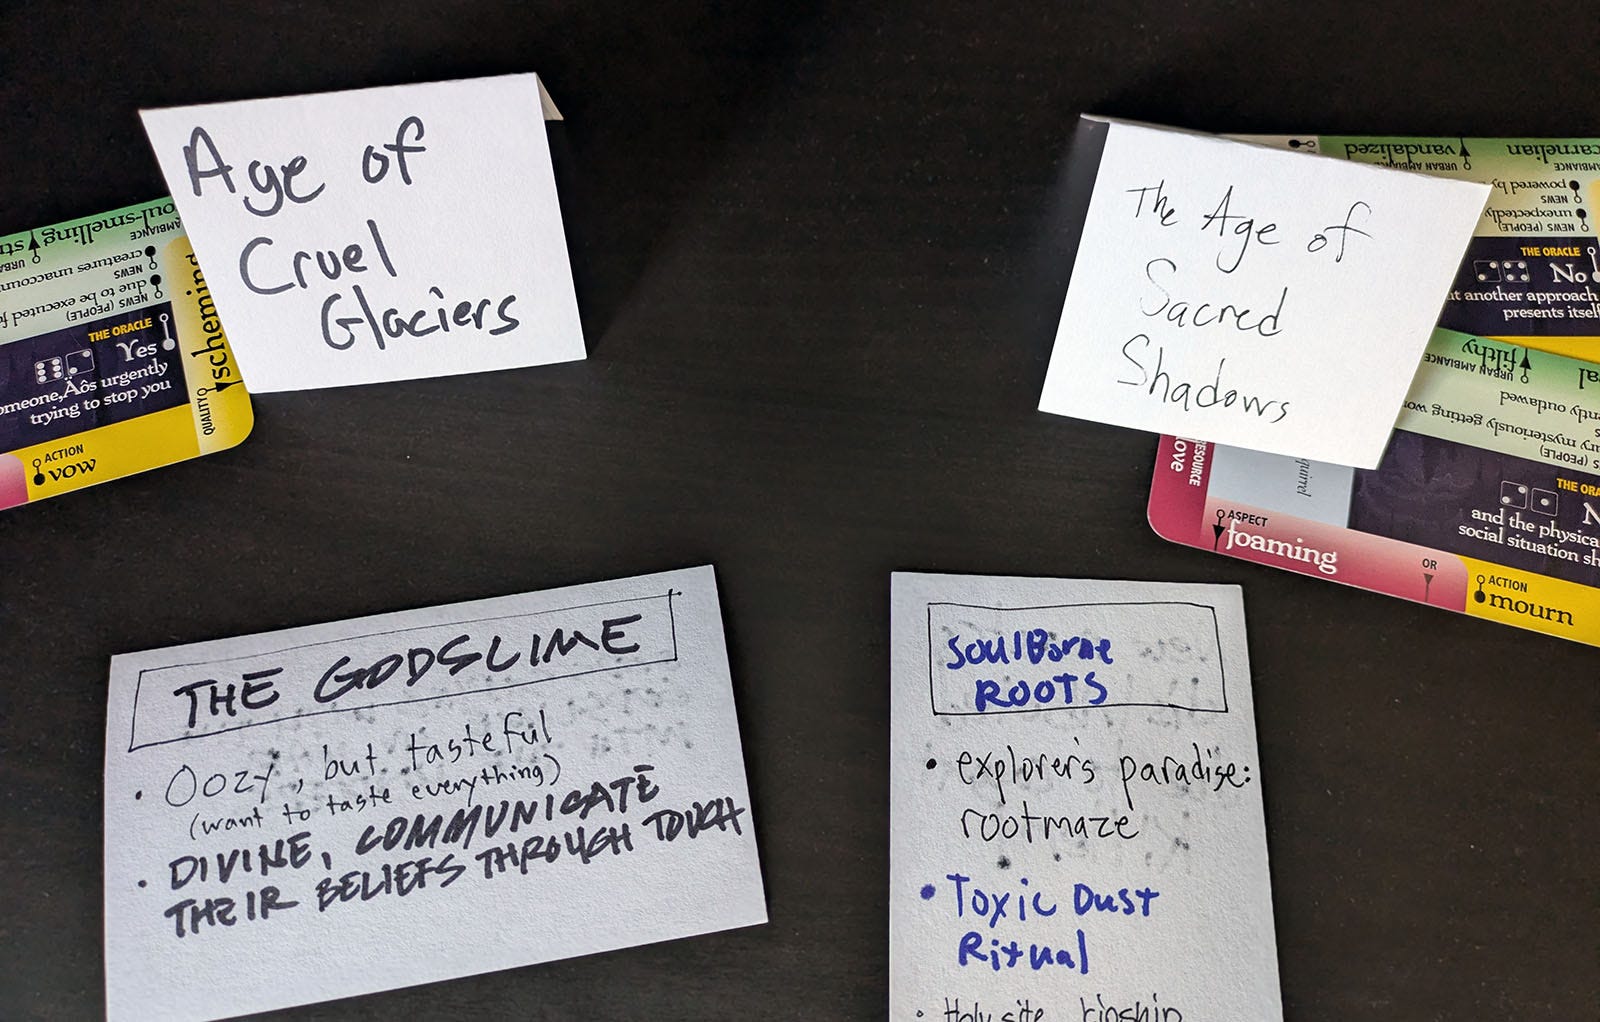 Age of
Cruel
Glaciers
The Age of
Sacred
Shadows
THE GODSLIME
• Oozy, but tasteful
(want to taste everything)
• DIVINE, COMMUNICATE
THEIR BELIEFS THROUGH TOUCH
SoulBorne
ROOTS
• explorer's paradise:
rootmaze
• Toxic Dust
Ritual
• Holy site kinship
foul-smelling
URBAN AMBIANCE
creatures unaccoun
NEWS
due to be executed f
NEWS (PEOPLE)
THE ORACLE
Yes
omeone‚Äôs urgently
trying to stop you
QUALITY
scheming
ACTION
vow
vandalized
URBAN AMBIANCE
carnelian
AMBIANCE
powered by
NEWS
unexpectedly
NEWS (PEOPLE)
THE ORACLE
No
ut another approach
presents itself
filthy
URBAN AMBIANCE
ntly outlawed
ury mysteriously getting wor
(PEOPLE)
THE ORA
and the physica
social situation sh
RESOURCE
love
quirrel
ASPECT
foaming
OR
ACTION
mourn